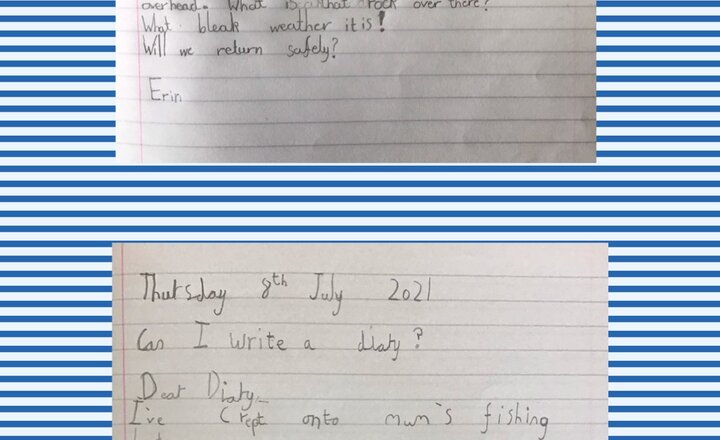 overhead. What is that rock over there?
What bleak weather it is!
Will we return safely?
Erin
Thursday 8th July 2021
Can I write a diary?
Dear Diary..
I've crept onto mum's fishing